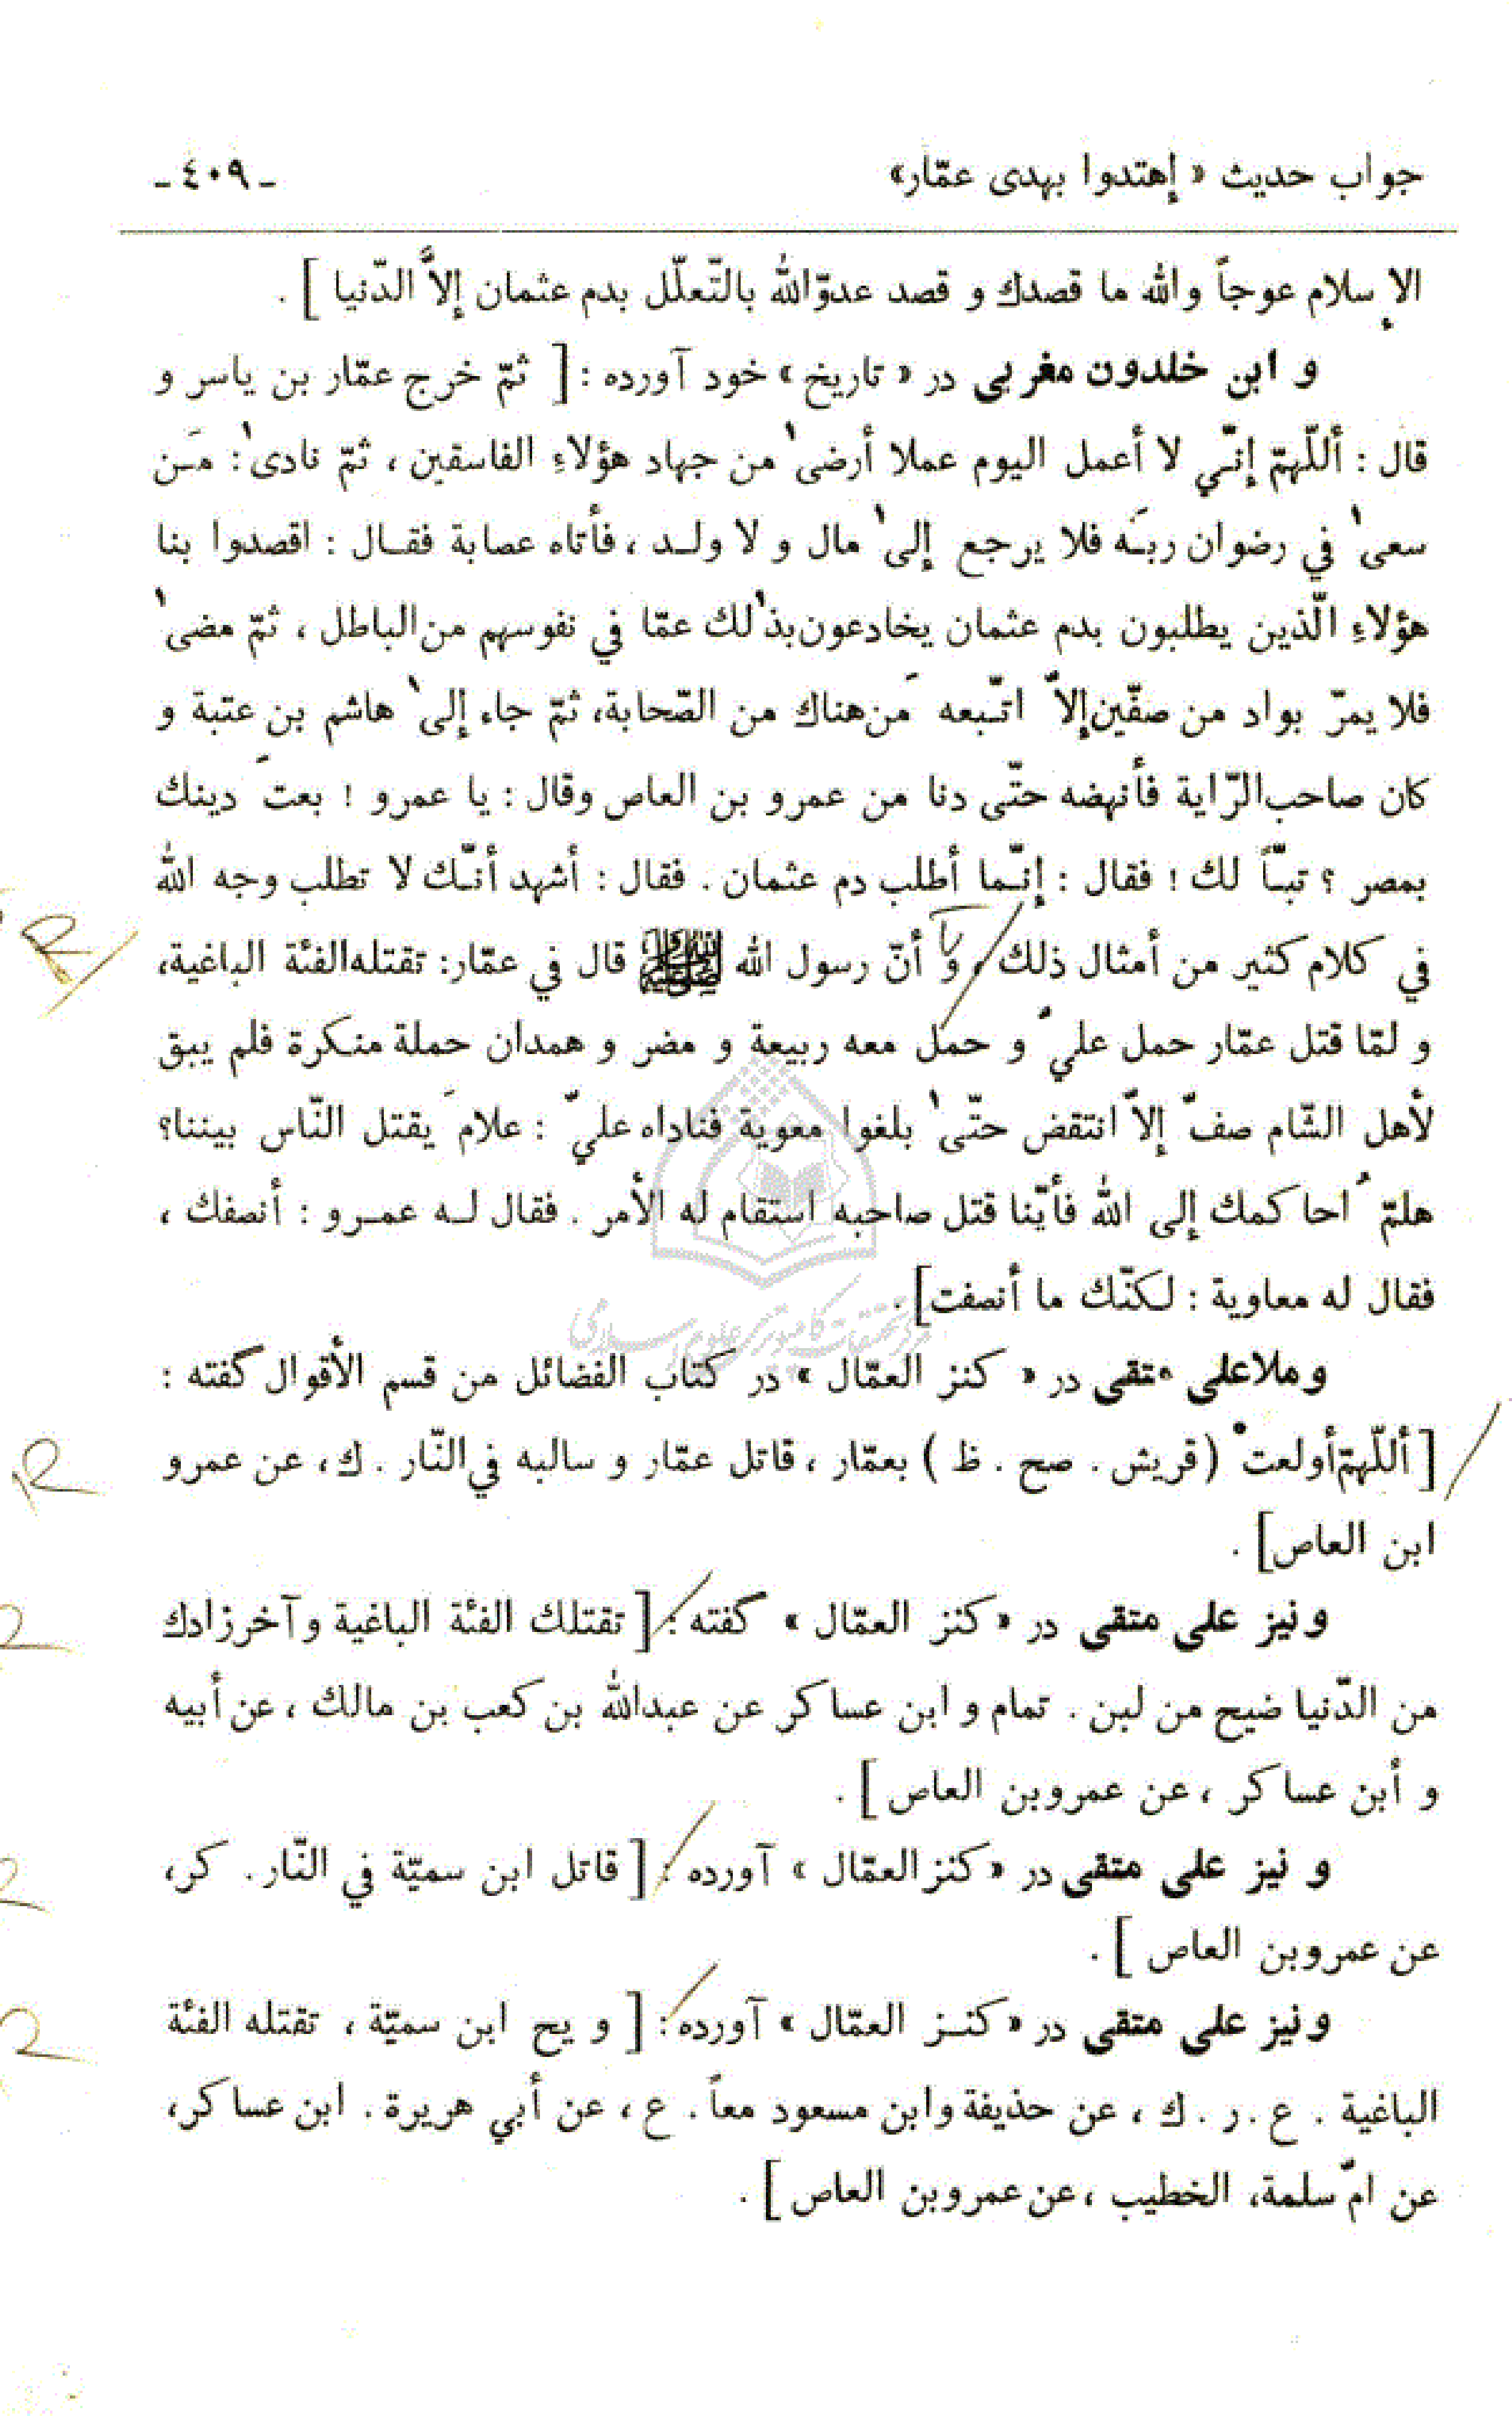 جواب حديث « إهتدوا بهدى عمّار» -٤٠٩-
الإسلام عوجاً والله ما قصدك و قصد عدوّالله بالتّعلّل بدم عثمان إلاَّ الدّنيا ] .
و ابن خلدون مغربى در « تاريخ » خود آورده : [ ثمّ خرج عمّار بن ياسر و
قال : أللّهمّ إنّي لا أعمل اليوم عملا أرضىٰ من جهاد هؤلاءِ الفاسقين ، ثمّ نادىٰ : مَن
سعىٰ في رضوان ربّه فلا يرجع إلىٰ مال و لا ولد ، فأتاه عصابة فقال : اقصدوا بنا
هؤلاءِ الّذين يطلبون بدم عثمان يخادعون بذٰلك عمّا في نفوسهم من الباطل ، ثمّ مضىٰ
فلا يمرّ بواد من صفّين إلاّ اتّبعه مَن هناك من الصّحابة، ثمّ جاء إلىٰ هاشم بن عتبة و
كان صاحب الرّاية فأنهضه حتّى دنا من عمرو بن العاص وقال : يا عمرو ! بعتَ دينك
بمصر ؟ تبّاً لك ! فقال : إنّما أطلب دم عثمان . فقال : أشهد أنّك لا تطلب وجه الله
في كلام كثير من أمثال ذلك ، و أنّ رسول الله ﷺ قال في عمّار: تقتله الفئة الباغية،
و لمّا قتل عمّار حمل عليّ و حمل معه ربيعة و مضر و همدان حملة منكرة فلم يبق
لأهل الشّام صفّ إلاّ انتقض حتّىٰ بلغوا معوية فناداه عليّ : علامَ يقتل النّاس بيننا؟
هلمّ اُحاكمك إلى الله فأيّنا قتل صاحبه استقام له الأمر . فقال له عمرو : أنصفك ،
فقال له معاوية : لكنّك ما أنصفت] .
مركز تحقيقات كامپيوترى علوم اسلامى
و ملاعلى متقى در « كنز العمّال » در كتاب الفضائل من قسم الأقوال گفته :
[ أللّهمّ أولعتْ (قريش . صح . ظ ) بعمّار ، قاتل عمّار و سالبه في النّار . ك، عن عمرو
ابن العاص] .
و نيز على متقى در « كنز العمّال » گفته : [ تقتلك الفئة الباغية و آخر زادك
من الدّنيا ضيح من لبن . تمام و ابن عساكر عن عبدالله بن كعب بن مالك ، عن أبيه
و أبن عساكر ، عن عمرو بن العاص ] .
و نيز على متقى در « كنز العمّال » آورده : [ قاتل ابن سميّة في النّار . كر،
عن عمرو بن العاص ] .
و نيز على متقى در « كنز العمّال » آورده : [ و يح ابن سميّة ، تقتله الفئة
الباغية . ع . ر . ك ، عن حذيفة وابن مسعود معاً . ع ، عن أبي هريرة . ابن عساكر،
عن امّ سلمة، الخطيب ، عن عمرو بن العاص ] .